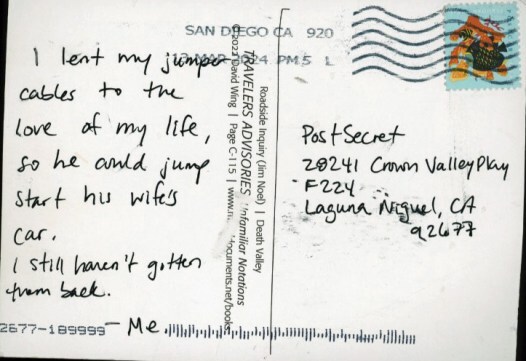 SAN DIEGO CA 920
13 MAR 2024 PM 5 L
I lent my jumper
cables to the
love of my life,
so he could jump
start his wife's
car.
I still haven't gotten
them back.
- Me
2677-189999
Roadside Inquiry (Jim Noel) | Death Valley
TRAVELERS ADVISORIES Unfamiliar Notations
©2022 David Wing | Page C-115 |
PostSecret
20241 Crown Valley Pkwy
F224
Laguna Niguel, CA
92677